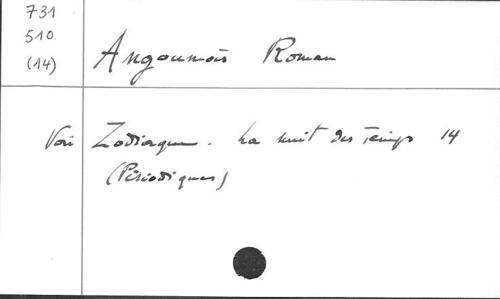 731
510
(14)
Angoumois Roman
Voir Zodiaque. La nuit des Temps 14
(Périodiques)